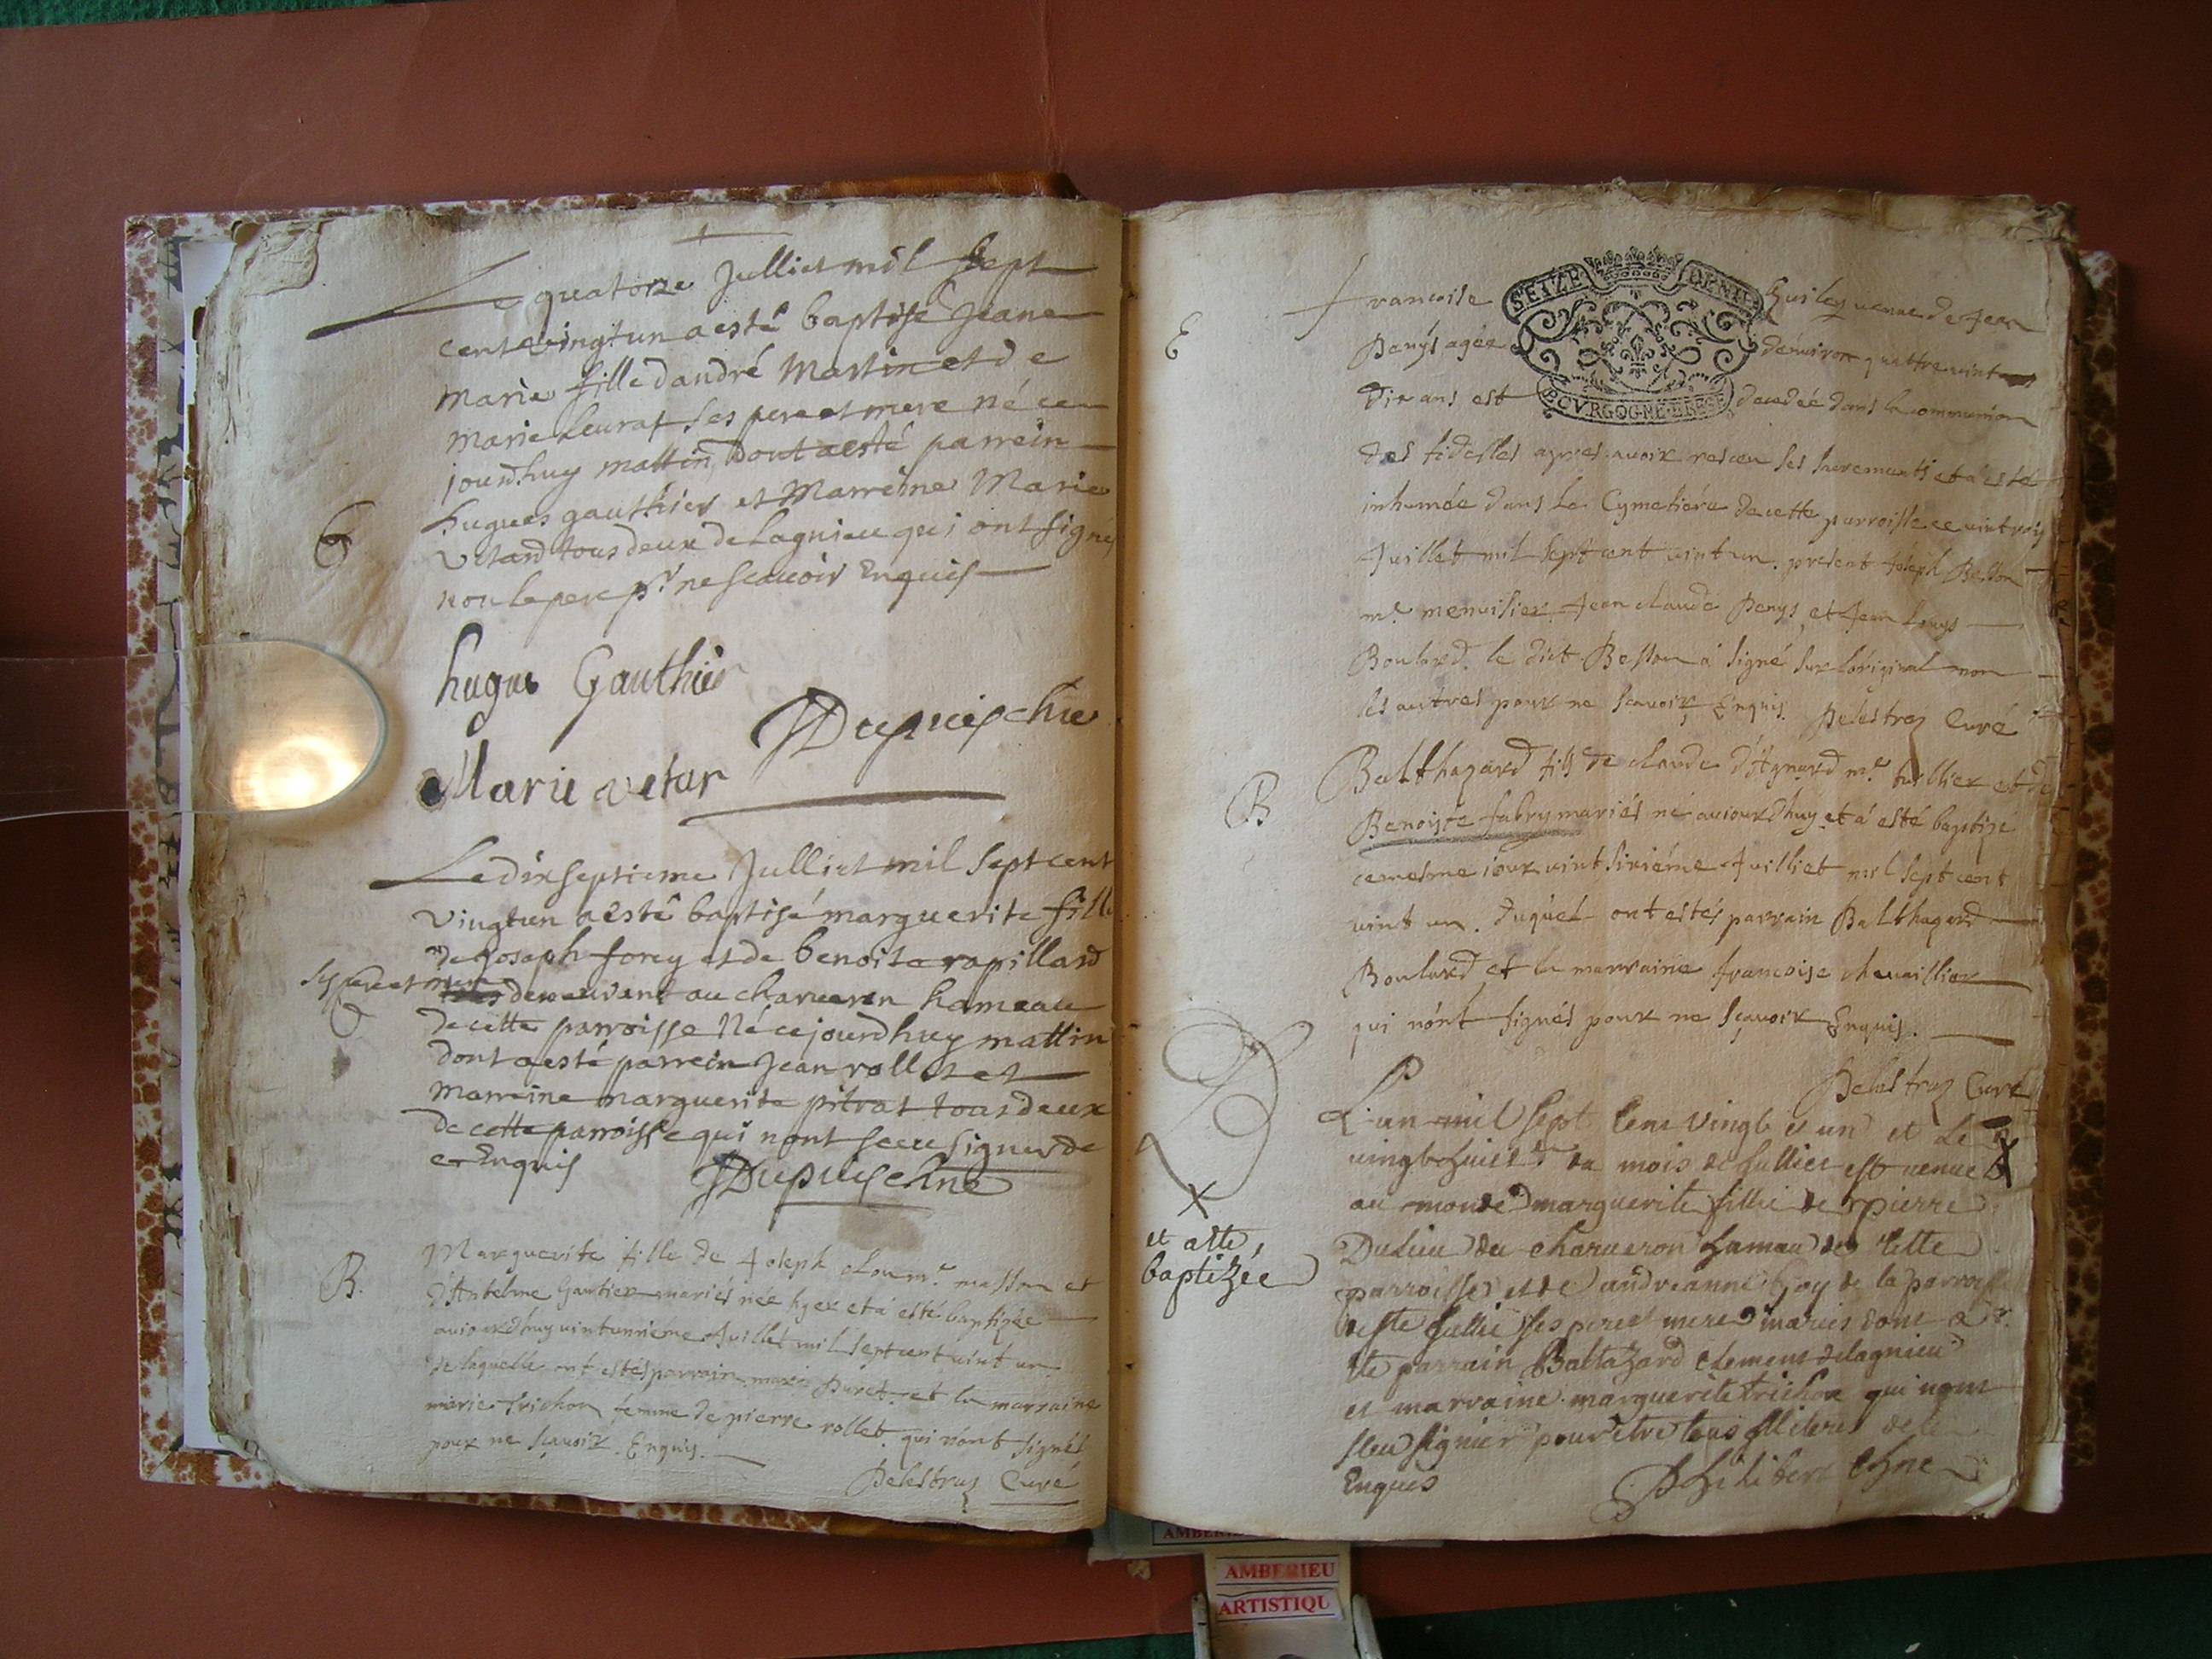 Le quatorze Julliet mil sept
cent vingt un a esté baptisé Jeane
Marie fille dandré Martin et de
Marie Leurat ses pere et mere né ce
jourdhuy mattin dont a esté parrein
hugues gauthier et Marreine Marie
vetard tous deux de Lagnieu qui ont signés
non le pere pr ne scavoir Enquis
hugue Gauthier
Dupuis
Marie vetar
Le dixseptieme Julliet mil sept cent
vingt un a esté baptisé marguerite fille
de Joseph forey et de benoite rapillard
ses pere et mere demeurant au charveron hameau
de cette parroisse Né ce jourdhuy mattin
dont a esté parrein Jean rollet et
marreine marguerite pitrat tous deux
de cette parroisse qui nont sceu signer de
ce Enquis
Dupuis
B.
Marguerite fille de Joseph mr. masson et
d'Antelme Gautier mariés née hyer et á esté baptizée
aujourdhuy vintunnieme Juillet mil sept cent vint un
de laquelle ont estés parrain Puret et la marraine
marie trichon femme de pierre rollet. qui n'ont signés
pour ne sçavoir Enquis.
Delestraz Curé
SEIZE DENIE
BOVRGOGNE BRESSE
E
francoise veuve de Jean
Denys agée d'environ quattrevint
dix ans est decedée dans la communion
des fidelles apres avoir resceu ses sacrements et a esté
inhumée dans le Cymetiére de cette parroisse ce vint trois
Juillet mil sept cent vint un. present Joseph Besson
mr. menuisier Jean claude Denys et Jean Louys
Boulard. le dict Besson á signé sur l'original non
les autres pour ne scavoir Enquis. Delestraz Curé
B
Balthazard fils de claude d'Agnard mr. et de
Benoiste fabry mariés né aujourdhuy et á esté baptizé
ce mesme jour vint sixiéme Julliet mil sept cent
vint un. Duquel ont estés parrain Balthazard
Boulard et la marraine francoise chevaillier
qui n'ont signés pour ne sçavoir Enquis.
Delestraz Curé
B
X
et atte
baptizée
L'an mil sept Cent vingt et un et Le
vingt huict du mois de Jullier est venue X
au monde marguerite fillie de pierre
Dulieu du charveron hamau de Cette
parroisse et de andreanne Goy de la parroisse
ses pere mere maries dont a
ete parrain Baltazard Clement delagnieu
et marraine marguerite trichon qui nont
sceu signier pour etre tous illiteres de ce
Enquis
Philibert
AMBERIEU
ARTISTIQU